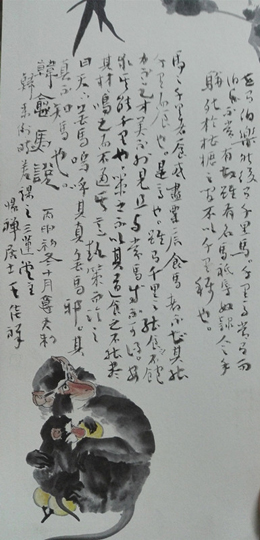 世有伯樂然後有千里馬千里馬常有而
伯樂不常有故雖有名馬祇辱奴隸人之手
駢死於槽櫪之間不以千里稱也
馬之千里者食或盡粟一石食馬者不知其能
千里而食也是馬也雖有千里之能食不飽
力不足才美不外見且與常馬等不可得安
求其能千里也策之不以其道食之不能盡
其材鳴之而不通其意執策而臨之
曰天下無馬嗚呼其真無馬邪其
真不知馬也
韓愈馬說 丙初冬十月
居士